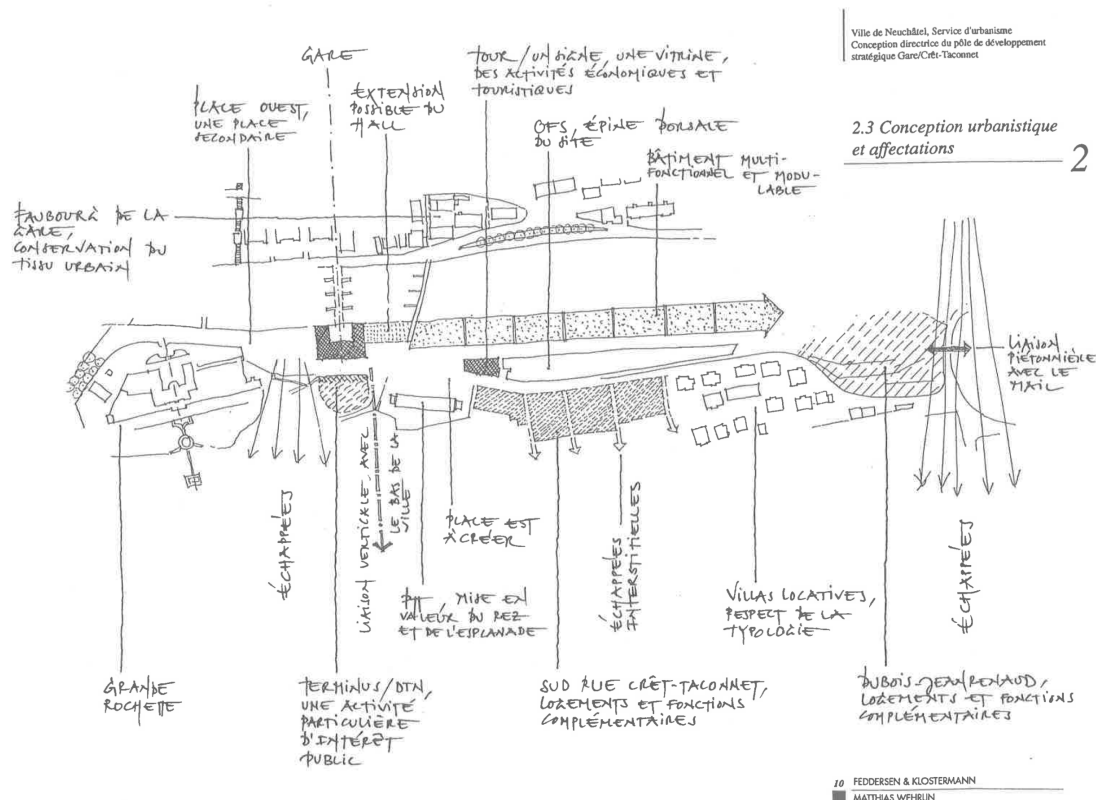 Ville de Neuchâtel, Service d'urbanisme
Conception directrice du pôle de développement
stratégique Gare/Crêt-Taconnet
2.3 Conception urbanistique
et affectations
2
GARE
TOUR/UN SIGNE, UNE VITRINE,
DES ACTIVITÉS ÉCONOMIQUES ET
TOURISTIQUES
PLACE OUEST,
UNE PLACE
SECONDAIRE
EXTENSION
POSSIBLE DU
HALL
OFS, ÉPINE DORSALE
DU SITE
BÂTIMENT MULTI-
FONCTIONNEL ET MODU-
LABLE
FAUBOURG DE LA
GARE,
CONSERVATION DU
TISSU URBAIN
LIAISON
PIÉTONNIÈRE
AVEC LE
MAIL
ÉCHAPPÉES
LIAISON VERTICALE AVEC
LE BAS DE LA
VILLE
PLACE EST
À CRÉER
ÉCHAPPÉES
INTERSTITIELLES
ÉCHAPPÉES
PTT, MISE EN
VALEUR DU REZ
ET DE L'ESPLANADE
VILLAS LOCATIVES,
RESPECT DE LA
TYPOLOGIE
GRANDE
ROCHETTE
TERMINUS/DTN,
UNE ACTIVITÉ
PARTICULIÈRE
D'INTÉRÊT
PUBLIC
SUD RUE CRÊT-TACONNET,
LOGEMENTS ET FONCTIONS
COMPLÉMENTAIRES
DUBOIS-JEANRENAUD,
LOGEMENTS ET FONCTIONS
COMPLÉMENTAIRES
10 FEDDERSEN & KLOSTERMANN
MATTHIAS WEHRLIN